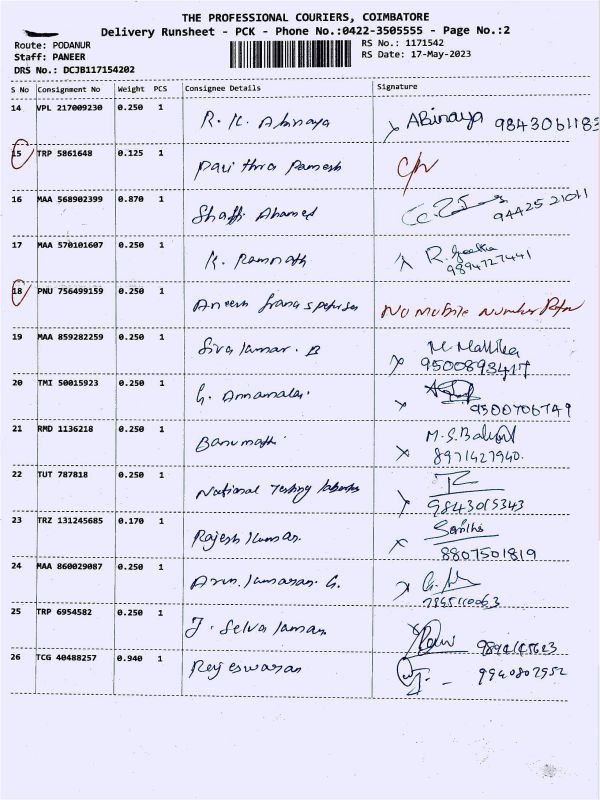 THE PROFESSIONAL COURIERS, COIMBATORE
Delivery Runsheet - PCK - Phone No.:0422-3505555 - Page No.:2
Route: PODANUR RS No.: 1171542
Staff: PANEER RS Date: 17-May-2023
DRS No.: DCJB117154202
S No Consignment No Weight PCS Consignee Details Signature
14 VPL 217009230 0.250 1 R. K. Abinaya x ABinaya 9843061183
15 TRP 5861648 0.125 1 Pavithra Ramesh
16 MAA 568902399 0.870 1 Shaffi Ahamed 9442521011
17 MAA 570101607 0.250 1 K. Ramnath R. Geetha
9894727441
18 PNU 756499159 0.250 1 Aneesh No Mobile Number Rtn
19 MAA 859282259 0.250 1 Sivakumar. B M. Mallika
x 9500893417
20 TMI 50015923 0.250 1 G. Annamalai x 9500706749
21 RMD 1136218 0.250 1 Banumathi M.S.
x 8971427940.
22 TUT 787818 0.250 1 National Testing
9843015343
23 TRZ 131245685 0.170 1 Rajesh Kumar. x
8807501819
24 MAA 860029087 0.250 1 Arun Kumaran. G. x
25 TRP 6954582 0.250 1 J. Selva Kumar x
26 TCG 40488257 0.940 1 Rajeswaran 9940807952